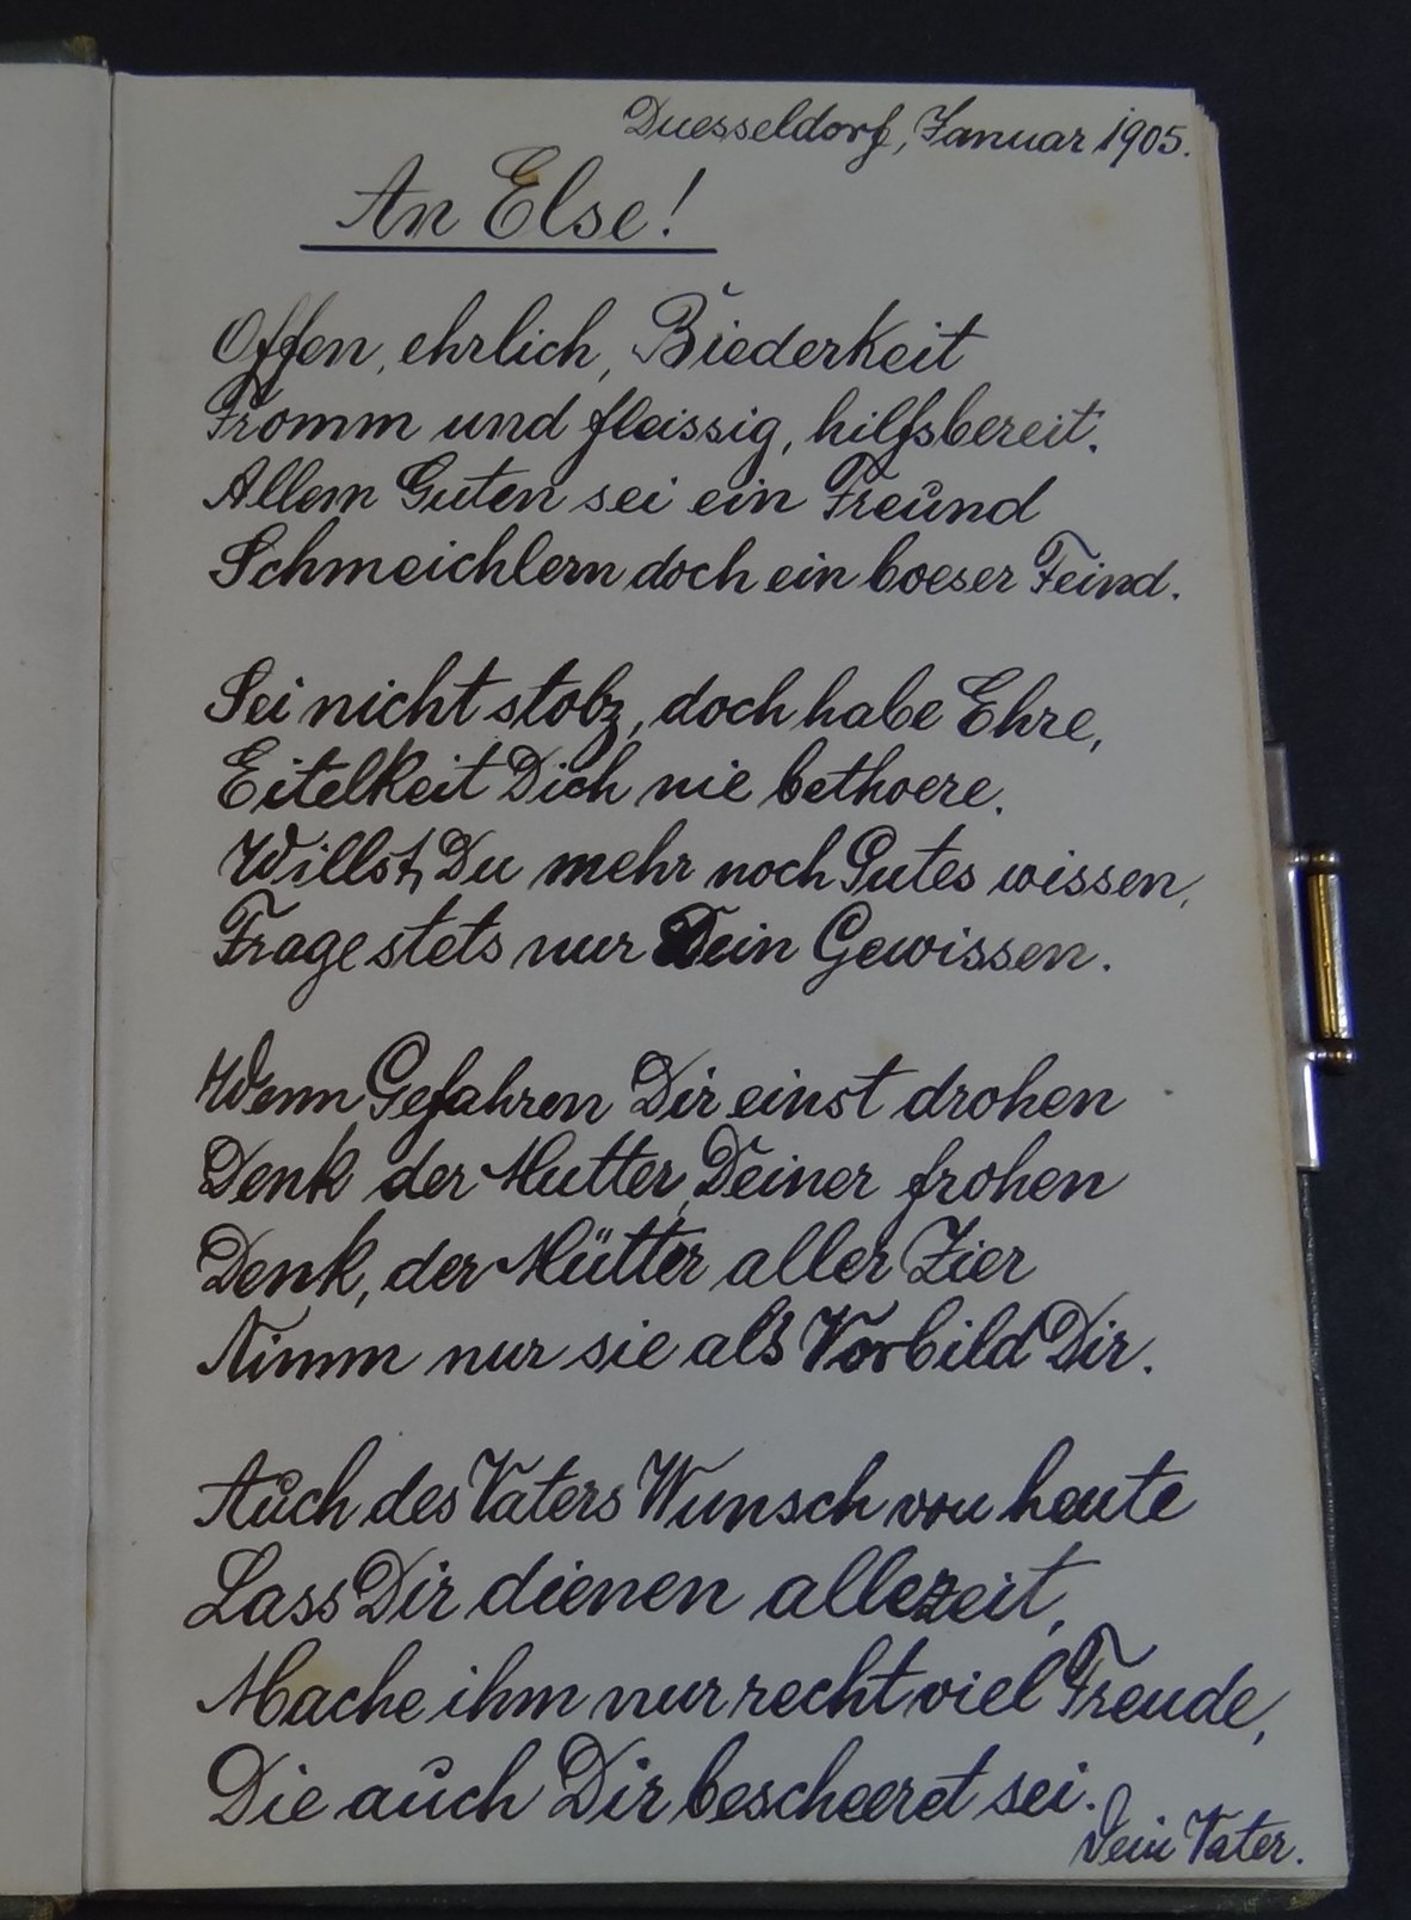 Duesseldorf, Januar 1905.
An Else!
Offen, ehrlich, Biederkeit
Fromm und fleissig, hilfsbereit.
Allem Guten sei ein Freund
Schmeichlern doch ein boeser Feind.
Sei nicht stolz, doch habe Ehre,
Eitelkeit Dich nie bethoere.
Willst Du mehr noch Gutes wissen,
Frage stets nur Dein Gewissen.
Wenn Gefahren Dir einst drohen
Denk der Mutter, Deiner frohen
Denk, der Mütter aller Zier
Nimm nur sie als Vorbild Dir.
Auch des Vaters Wunsch von heute
Lass Dir dienen allezeit,
Mache ihm nur recht viel Freude,
Die auch Dir bescheeret sei.
Dein Vater.